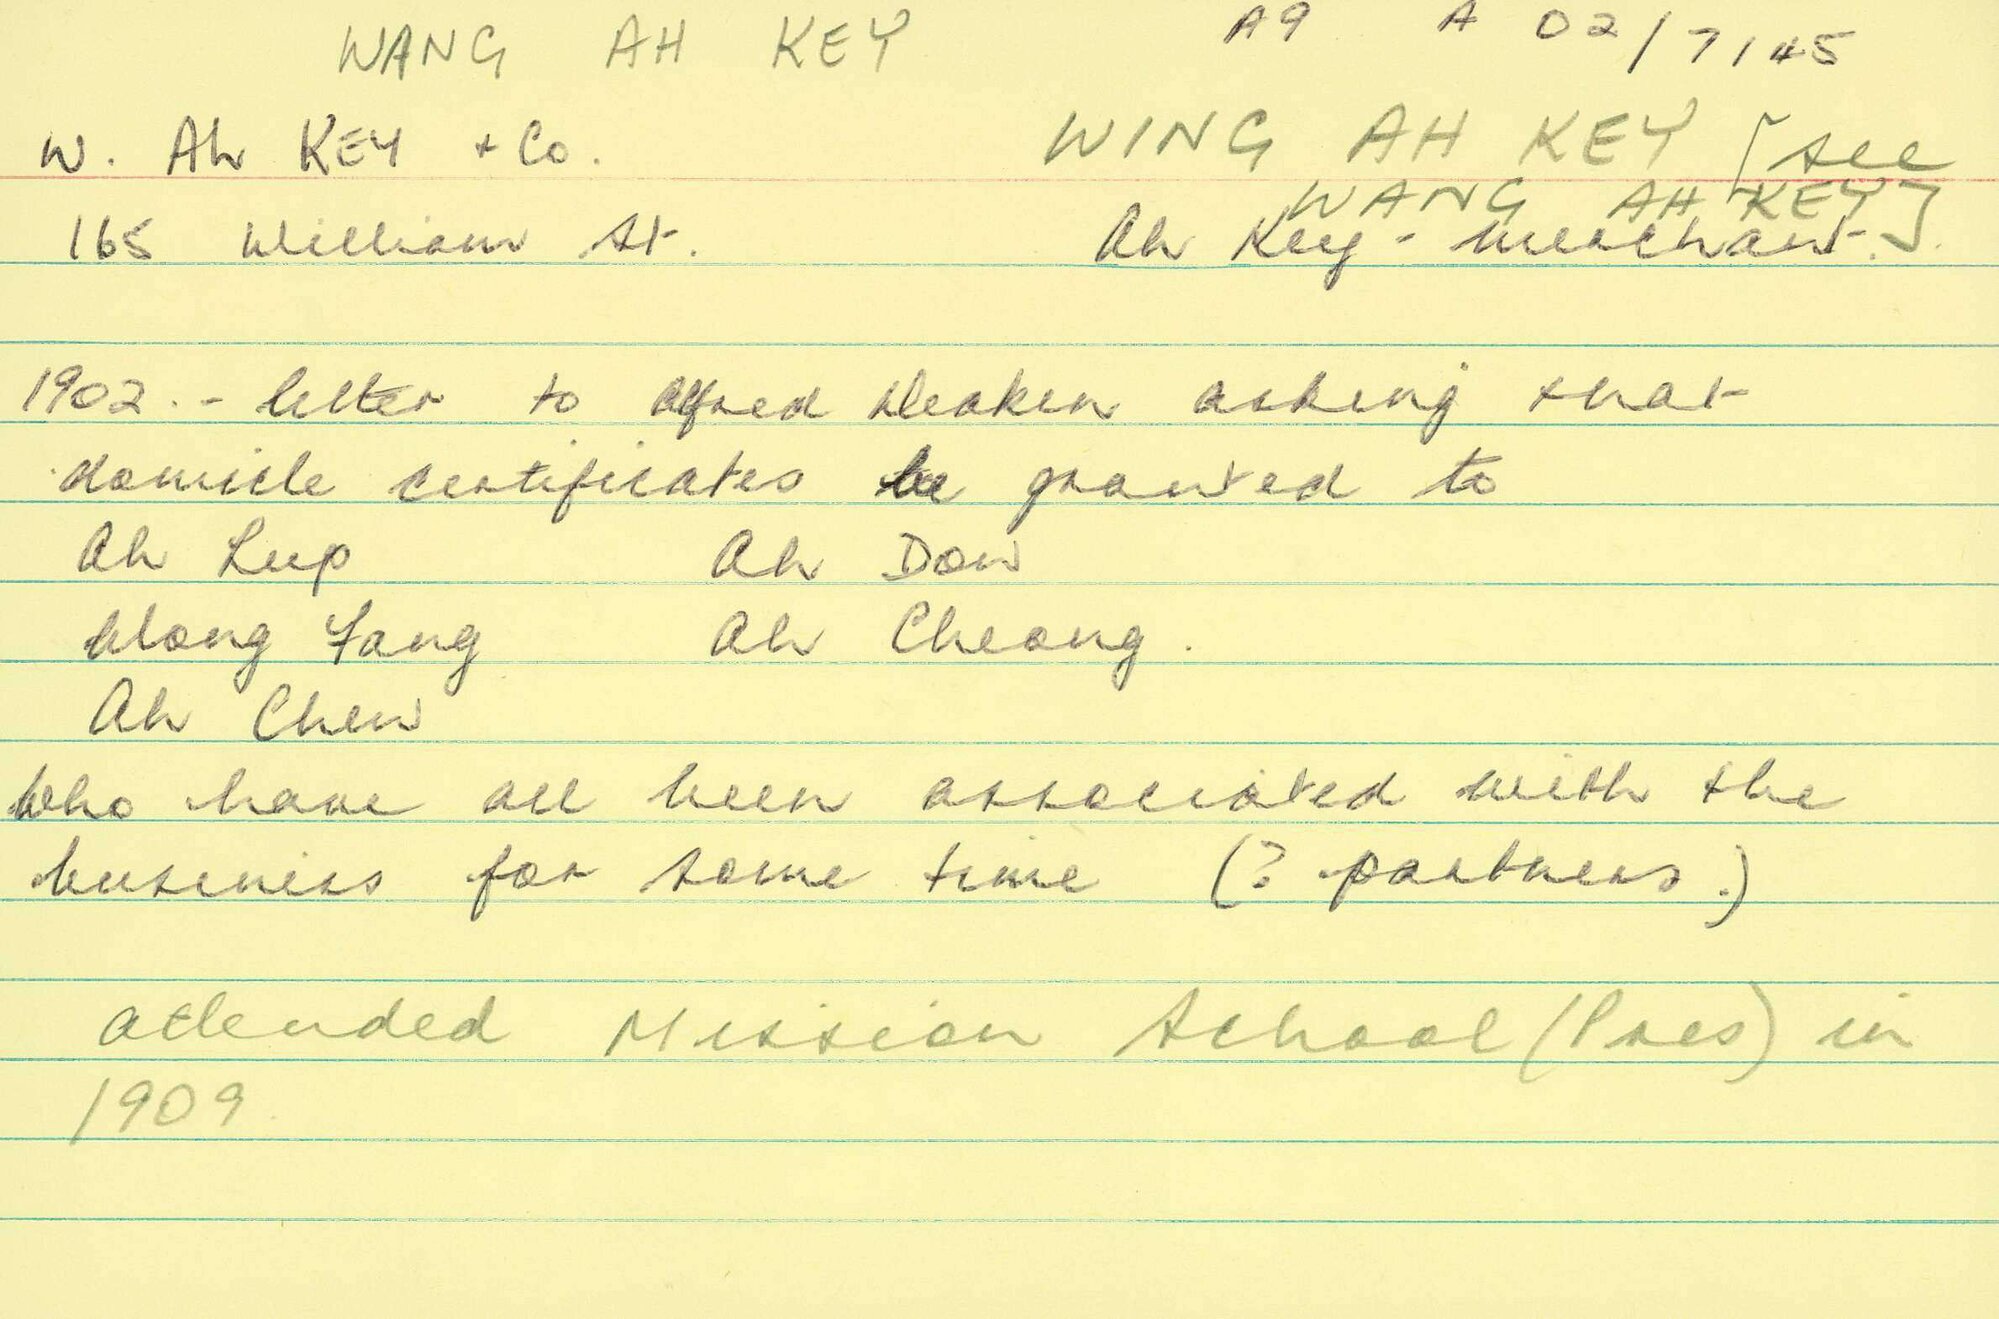 WANG AH KEY A9 A 02/7145
W. Ah KEY + Co. WING AH KEY [see
WANG AH KEY].
165 William St. Ah Key - merchant.
1902. - letter to Alfred Deakin asking that
domicle certificates be granted to
Ah Lup Ah Dow
Wong Fang Ah Cheong.
Ah Chew
who have all been associated with the
business for some time (? partners.)
attended Mission School (Pres) in
1909.